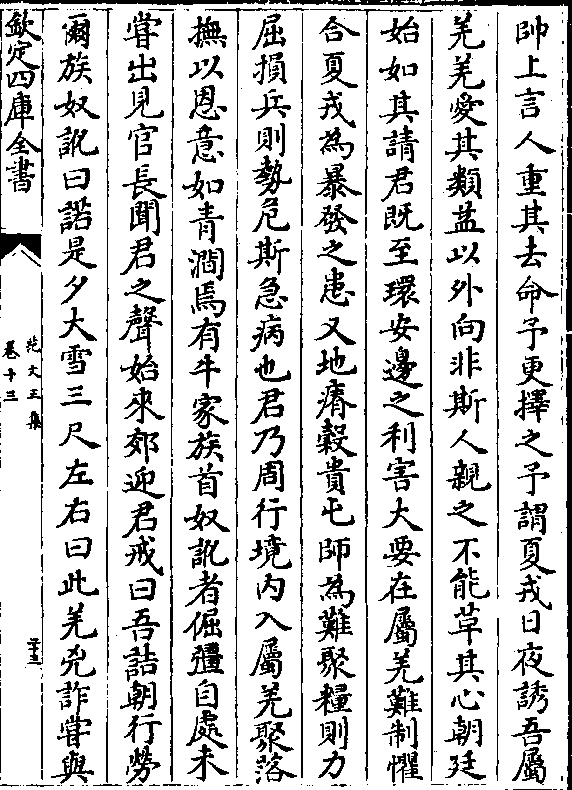 帥上言人重其去命予更擇之予謂夏戎日夜誘吾屬
羌羌愛其類益以外向非斯人親之不能革其心朝廷
始如其請君既至環安邊之利害大要在屬羌難制懼
合夏戎為暴發之患又地瘠穀貴屯師為難聚糧則力
屈損兵則勢危斯急病也君乃周行境內入屬羌聚落
撫以恩意如青澗焉有牛家族首奴訛者倔彊自處未
嘗出見官長聞君之聲始來郊迎君戒曰吾詰朝行勞
爾族奴訛曰諾是夕大雪三尺左右曰此羌兇詐嘗與
欽定四庫全書
范文正集
卷十三
二十三